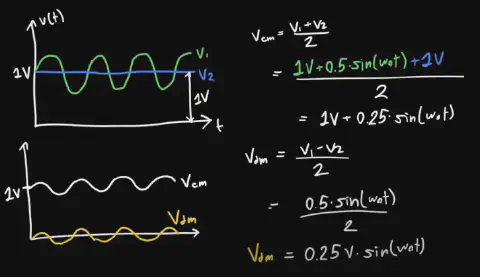 v(t)
V₁
1V
V₂
1V
t
1V
Vcm
Vdm
Vcm = (V₁+V₂)/2
= (1V+0.5·sin(ω₀t)+1V)/2
= 1V+0.25·sin(ω₀t)
Vdm = (V₁-V₂)/2
= 0.5·sin(ω₀t)/2
Vdm = 0.25V·sin(ω₀t)